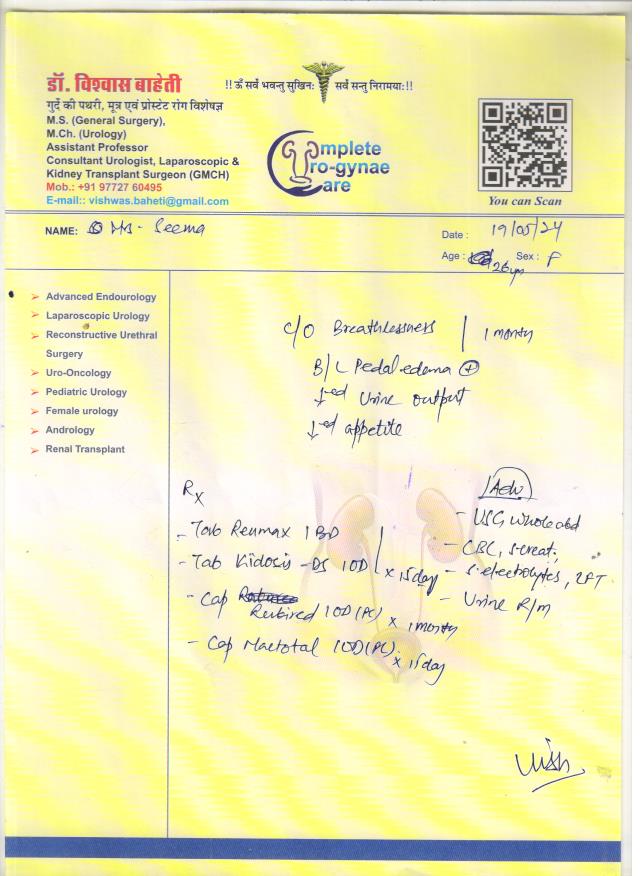 डॉ. विश्वास बाहेती
गुर्दे की पथरी, मूत्र एवं प्रोस्टेट रोग विशेषज्ञ
M.S. (General Surgery),
M.Ch. (Urology)
Assistant Professor
Consultant Urologist, Laparoscopic &
Kidney Transplant Surgeon (GMCH)
Mob.: +91 97727 60495
E-mail:: vishwas.baheti@gmail.com
!! ॐ सर्वे भवन्तु सुखिनः सर्वे सन्तु निरामयाः !!
Complete
Uro-gynae
Care
You can Scan
NAME: Ms- Seema
Date : 19/05/24
Age : 26yr Sex : F
Advanced Endourology
Laparoscopic Urology
Reconstructive Urethral
Surgery
Uro-Oncology
Pediatric Urology
Female urology
Andrology
Renal Transplant
C/O Breathlessness | 1 month
B/L Pedal edema ⊕
↓ed Urine output
↓ed appetite
Rx
- Tab Renmax 1 BD
- Tab Kidosis -DS 1OD x 15 day
- Cap Rubired 1OD (PC) x 1 month
- Cap Mactotal 1OD (PC) x 15 day
Adv
- USG whole abd
- CBC, s.creat,
- s.electrolytes, LFT
- Urine R/m
Vish